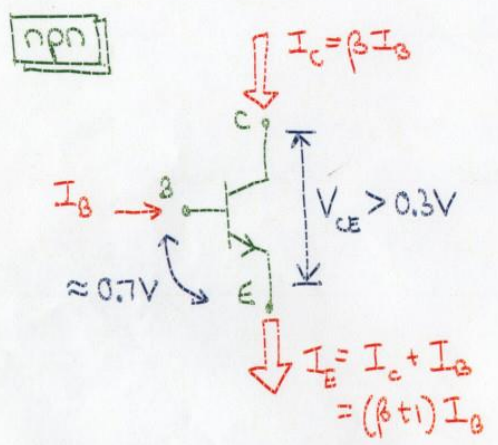 npn
I_C = βI_B
C
B
I_B
V_CE > 0.3V
≈ 0.7V
E
I_E = I_C + I_B
= (β+1) I_B